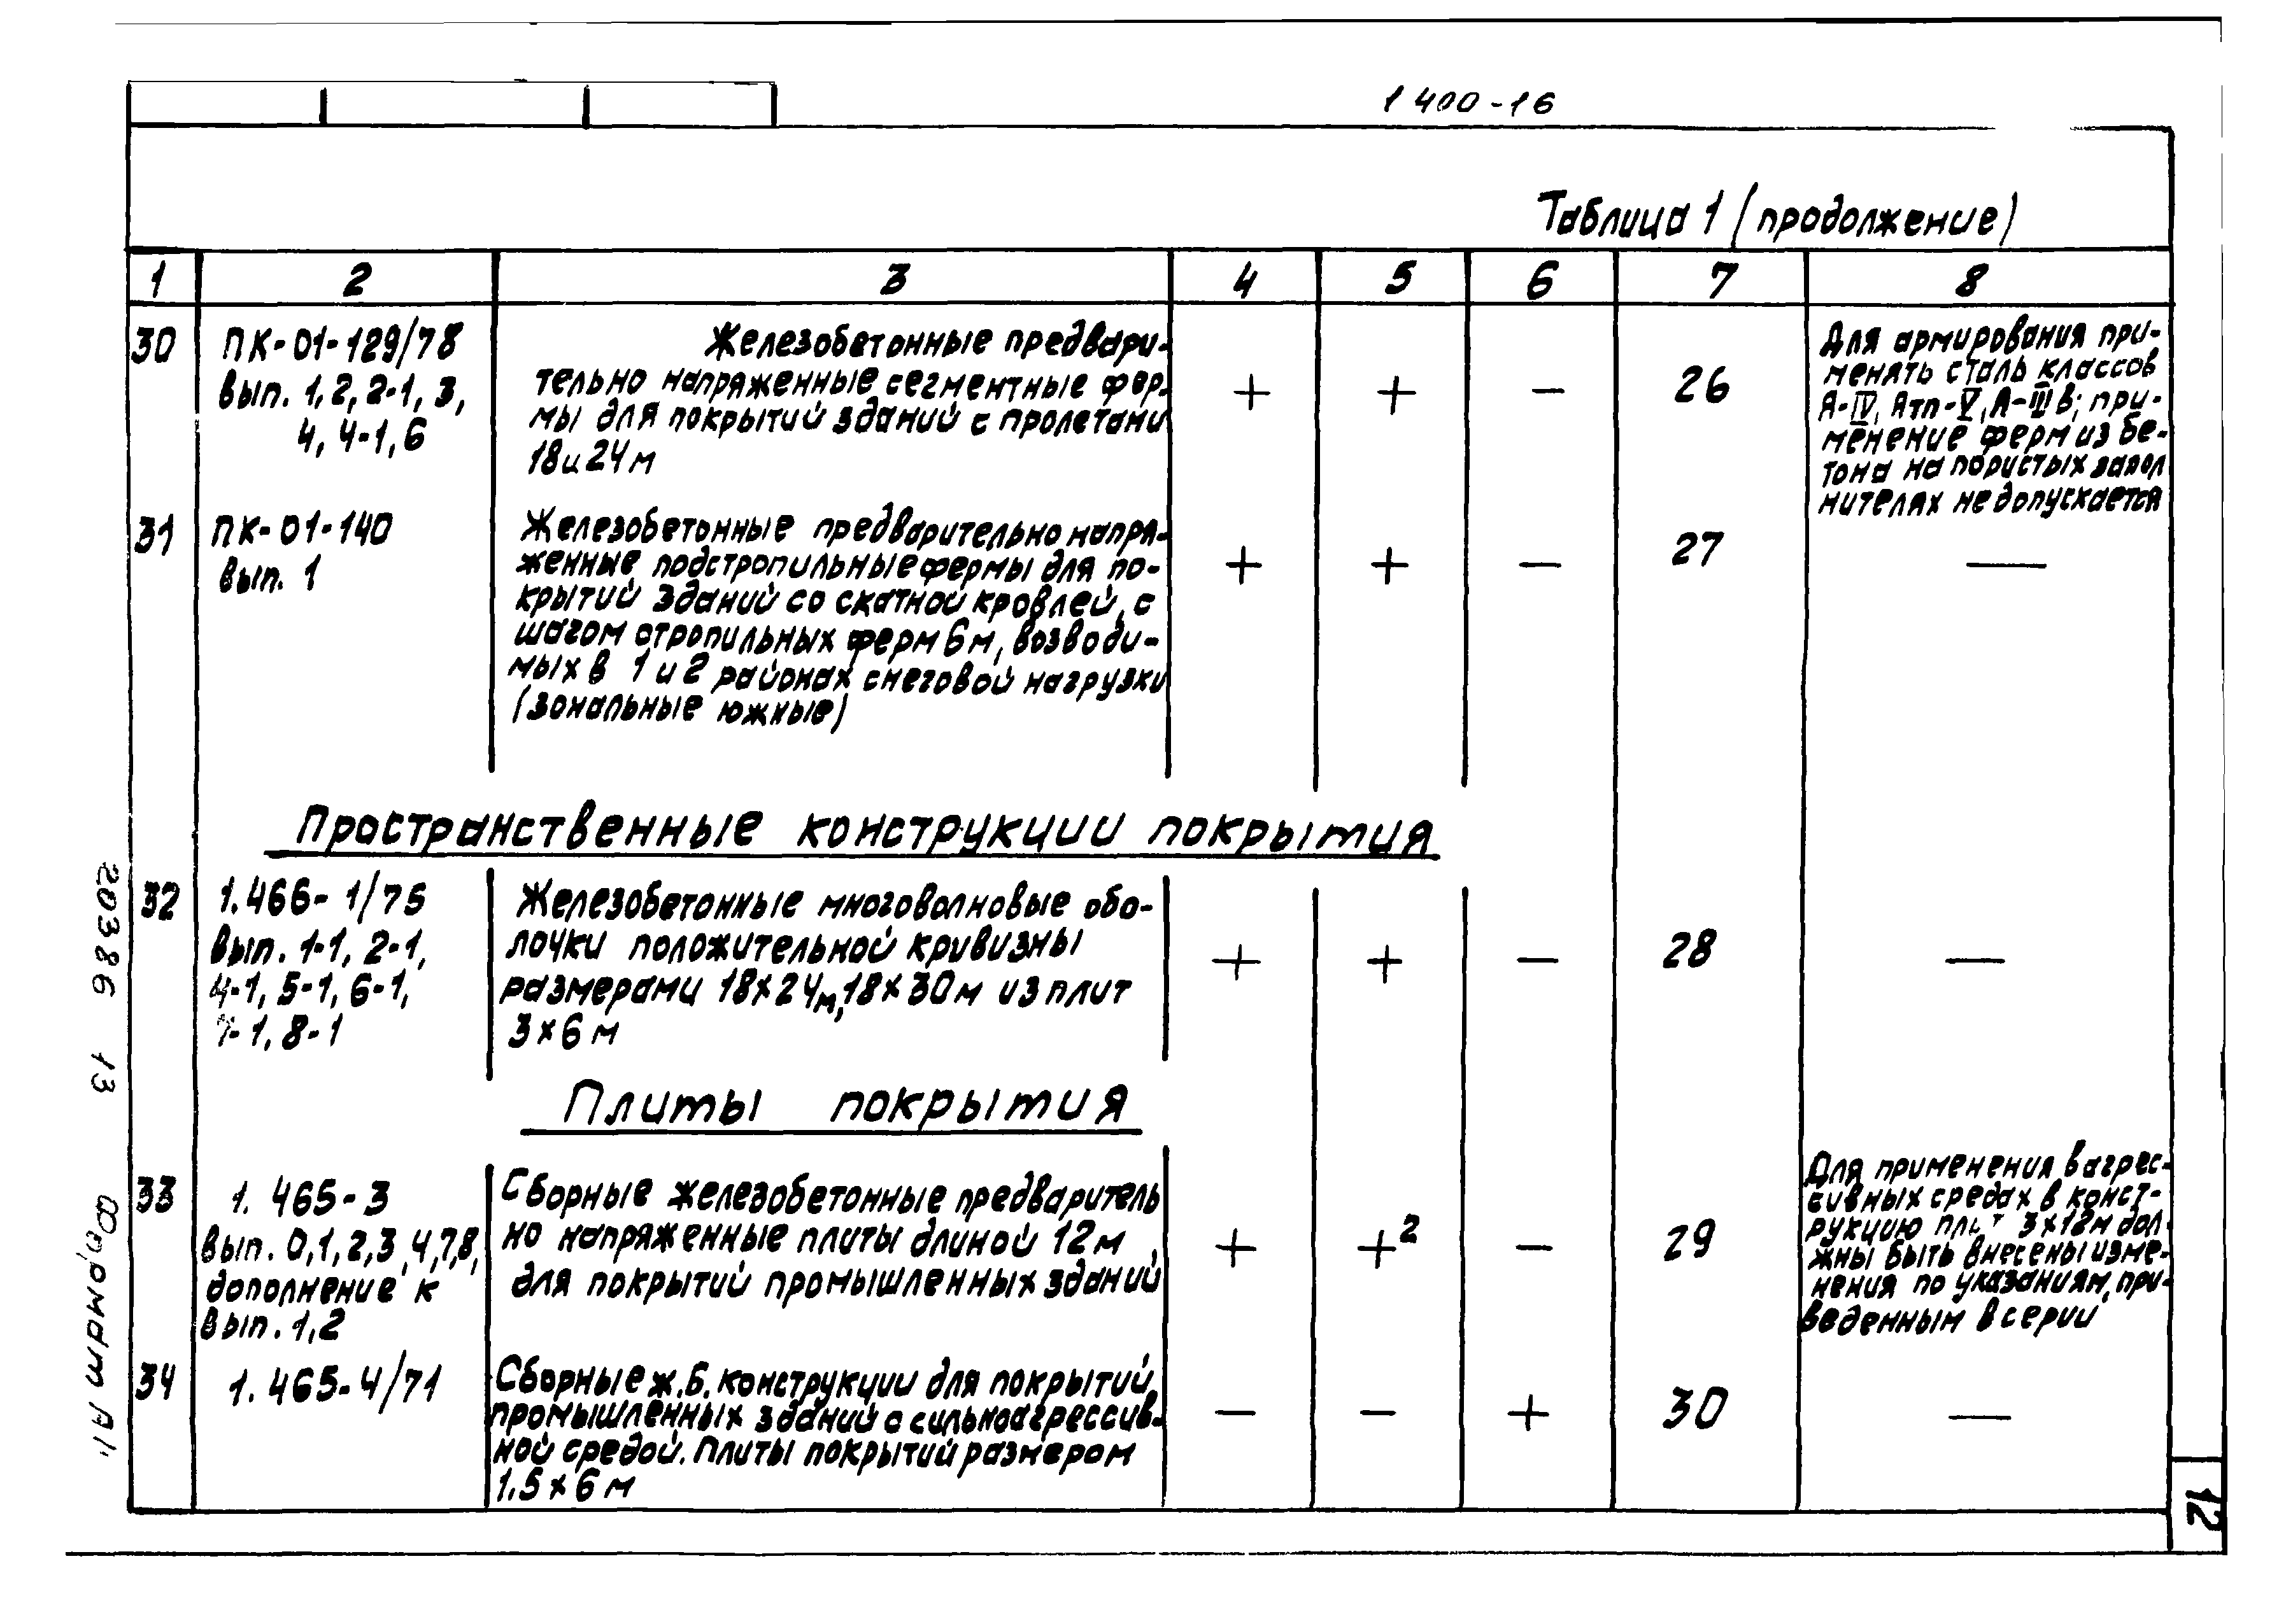 1 400-16
Таблица 1 (продолжение)
1 2 3 4 5 6 7 8
30 ПК-01-129/78
вып. 1, 2, 2-1, 3,
4, 4-1, 6
Железобетонные предвари-
тельно напряженные сегментные фер-
мы для покрытий зданий с пролетами
18 и 24 м
+ + - 26
Для армирования при-
менять сталь классов
А-IV, Атп-V, А-III в; при-
менение ферм из бе-
тона на пористых запол
нителях не допускается
31 ПК-01-140
вып. 1
Железобетонные предварительно напря-
женные подстропильные фермы для по-
крытий зданий со скатной кровлей, с
шагом стропильных ферм 6 м, возводи-
мых в 1 и 2 районах снеговой нагрузки
(зональные южные)
+ + - 27 —
Пространственные конструкции покрытия
32 1.466-1/75
вып. 1-1, 2-1,
4-1, 5-1, 6-1,
7-1, 8-1
Железобетонные многоволновые обо-
лочки положительной кривизны
размерами 18×24м, 18×30м из плит
3×6 м
+ + - 28 —
Плиты покрытия
33 1. 465-3
вып. 0, 1, 2, 3, 4, 7, 8,
дополнение к
вып. 1, 2
Сборные железобетонные предваритель
но напряженные плиты длиной 12 м
для покрытий промышленных зданий
+ +2 - 29
Для применения в агрес-
сивных средах в конст-
рукцию плит 3×12м дол
жны быть внесены изме-
нения по указаниям, при-
веденным в серии
34 1. 465-4/71
Сборные ж.б. конструкции для покрытий
промышленных зданий с сильноагрессив-
ной средой. Плиты покрытий размером
1.5×6 м
- - + 30 —
20386 13 Формат А4
12